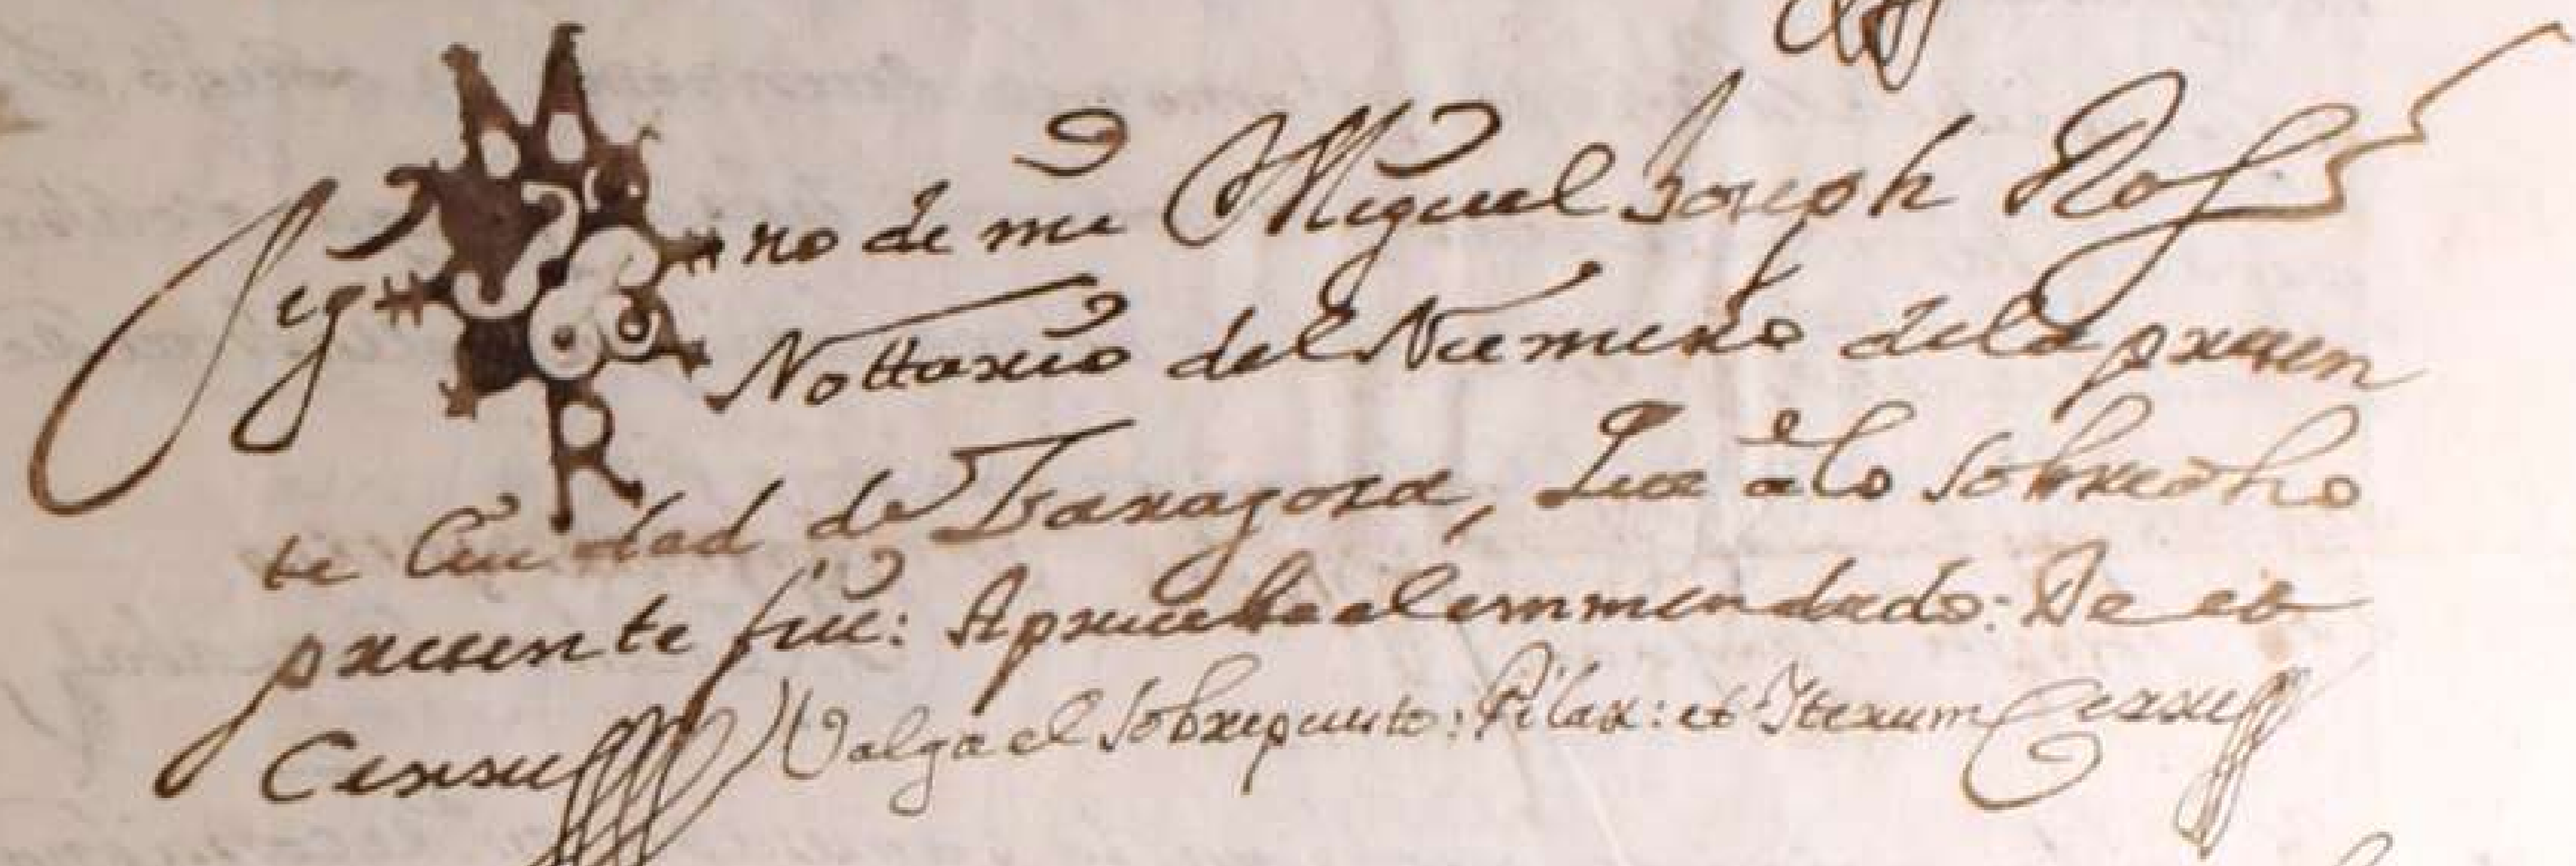 Sig no de mi Miguel Joseph
Nottario del Numero dela presen
te Ciudad de Taragona, Que a lo sobredho
presente fui: Apruebo el emmendado: De et
Cerré Valga el sobrepuesto: Pilar: et Iterum Cerré